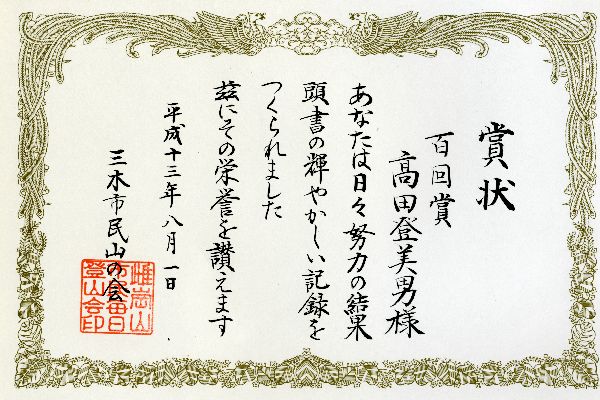 賞状
百回賞
高田登美男様
あなたは日々努力の結果
頭書の輝やかしい記録を
つくられました
茲にその栄誉を讃えます
平成十三年八月一日
三木市民山の会
雌岡山
毎日
登山会印